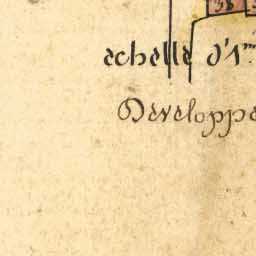 38
echelle d'1
Developpe